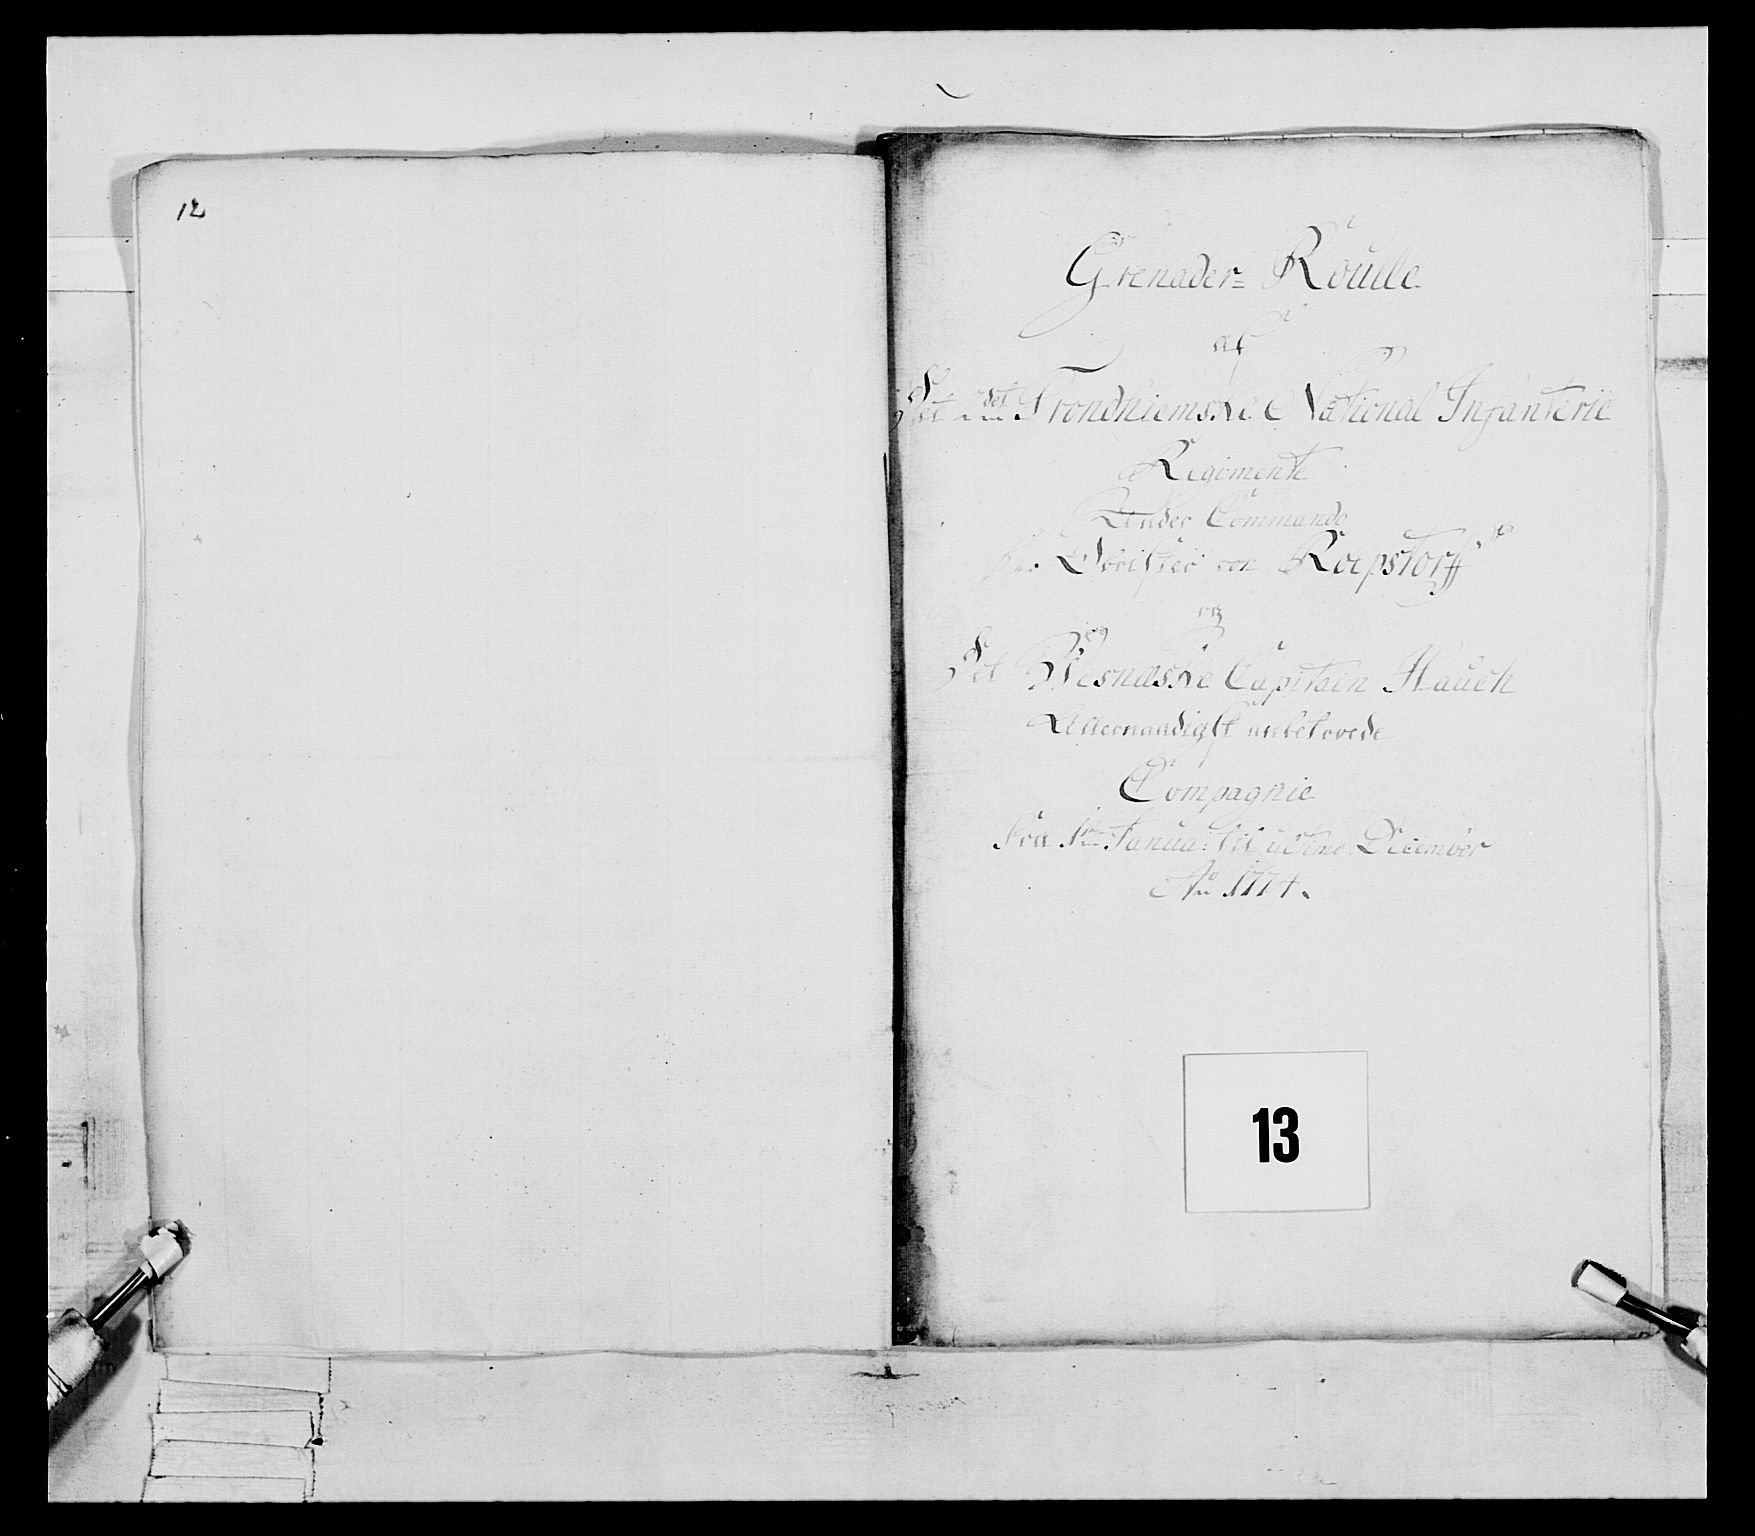 12
Grenader= Roulle
af
Det 2det Trondhiemske National Infanterie
Regimente
Under Commando
Hr. Obrister von Roepstorff
og
Det Wesnæske Capitain Hauch
Allernaadigst anbetroede
Compagnie
Fra 1te Januar til ultimo December
Ao 1774.
13